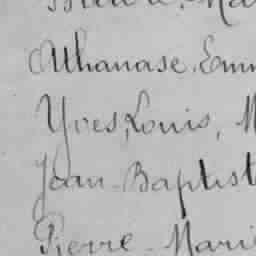 Athanase, Emm
Yves, Louis, M
Jean-Baptist
Pierre-Marie